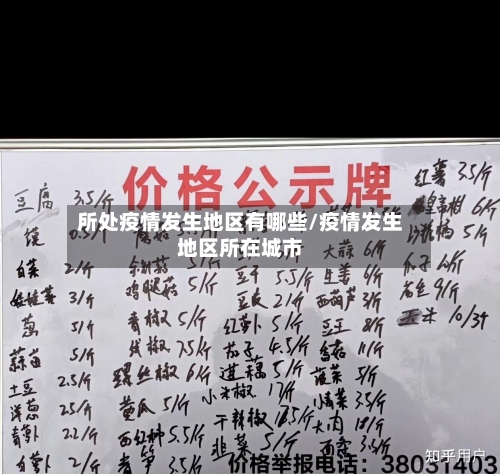 价格公示牌
所处疫情发生地区有哪些/疫情发生
地区所在城市
豆腐 3.5/斤
馍 0.5/
白菜 2/斤
娃娃菜 3/斤
葱 5/斤
蒜苗 5/斤
土豆 2.5/斤
洋葱 2.5/斤
青萝卜 2.2/斤
白萝卜 2/斤
鸡腿菇 5/斤
青椒 5/斤
线椒 7.5/斤
螺丝椒 6/斤
黄瓜 5/斤
西红柿 5.5/斤
青笋 3.5/斤
豆干 5.5/斤
豆皮 21/斤
红萝卜 5/斤
茄子 4.5/斤
莲藕 5/斤
小米椒 17/斤
干辣椒 18.5/斤
韭菜 5/斤
大蒜 6/斤
生姜 6/斤
西葫芦 3/斤
豆王 8/斤
香菇 11/斤
菠菜 5/斤
油菜 3.5/斤
大肉 18/斤
红薯 3.5/斤
6/斤
沙糖桔 5/斤
瓜子 10/斤
花生 9/斤
玉米 10/3个
价格举报电话：38031403
知乎用户